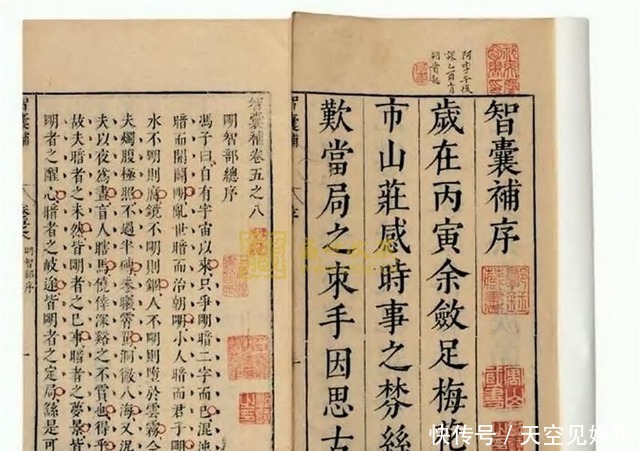 智囊補序
歲在丙寅余斂足梅
市山莊感時事之棼絲
歎當局之束手因思古
智囊補卷五之八
明智部總序
馮子曰自有宇宙以來只爭明暗二字而巳混沌
暗而開闢明亂世暗而治朝明小人暗而君子明
水不明則腐鏡不明則錮人不明則墮於雲霧今
夫燭腹極照不過半磚朱曦霄駕洞徹八海又況
夫以夜爲晝盲人瞎馬僥倖深谿之不霣也得乎
故夫暗者之未然皆明者之巳事暗者之夢景皆
明者之醒心暗者之歧途皆明者之定局繇是可
智囊補
明智部序
一
快传号 / 天空见娱乐